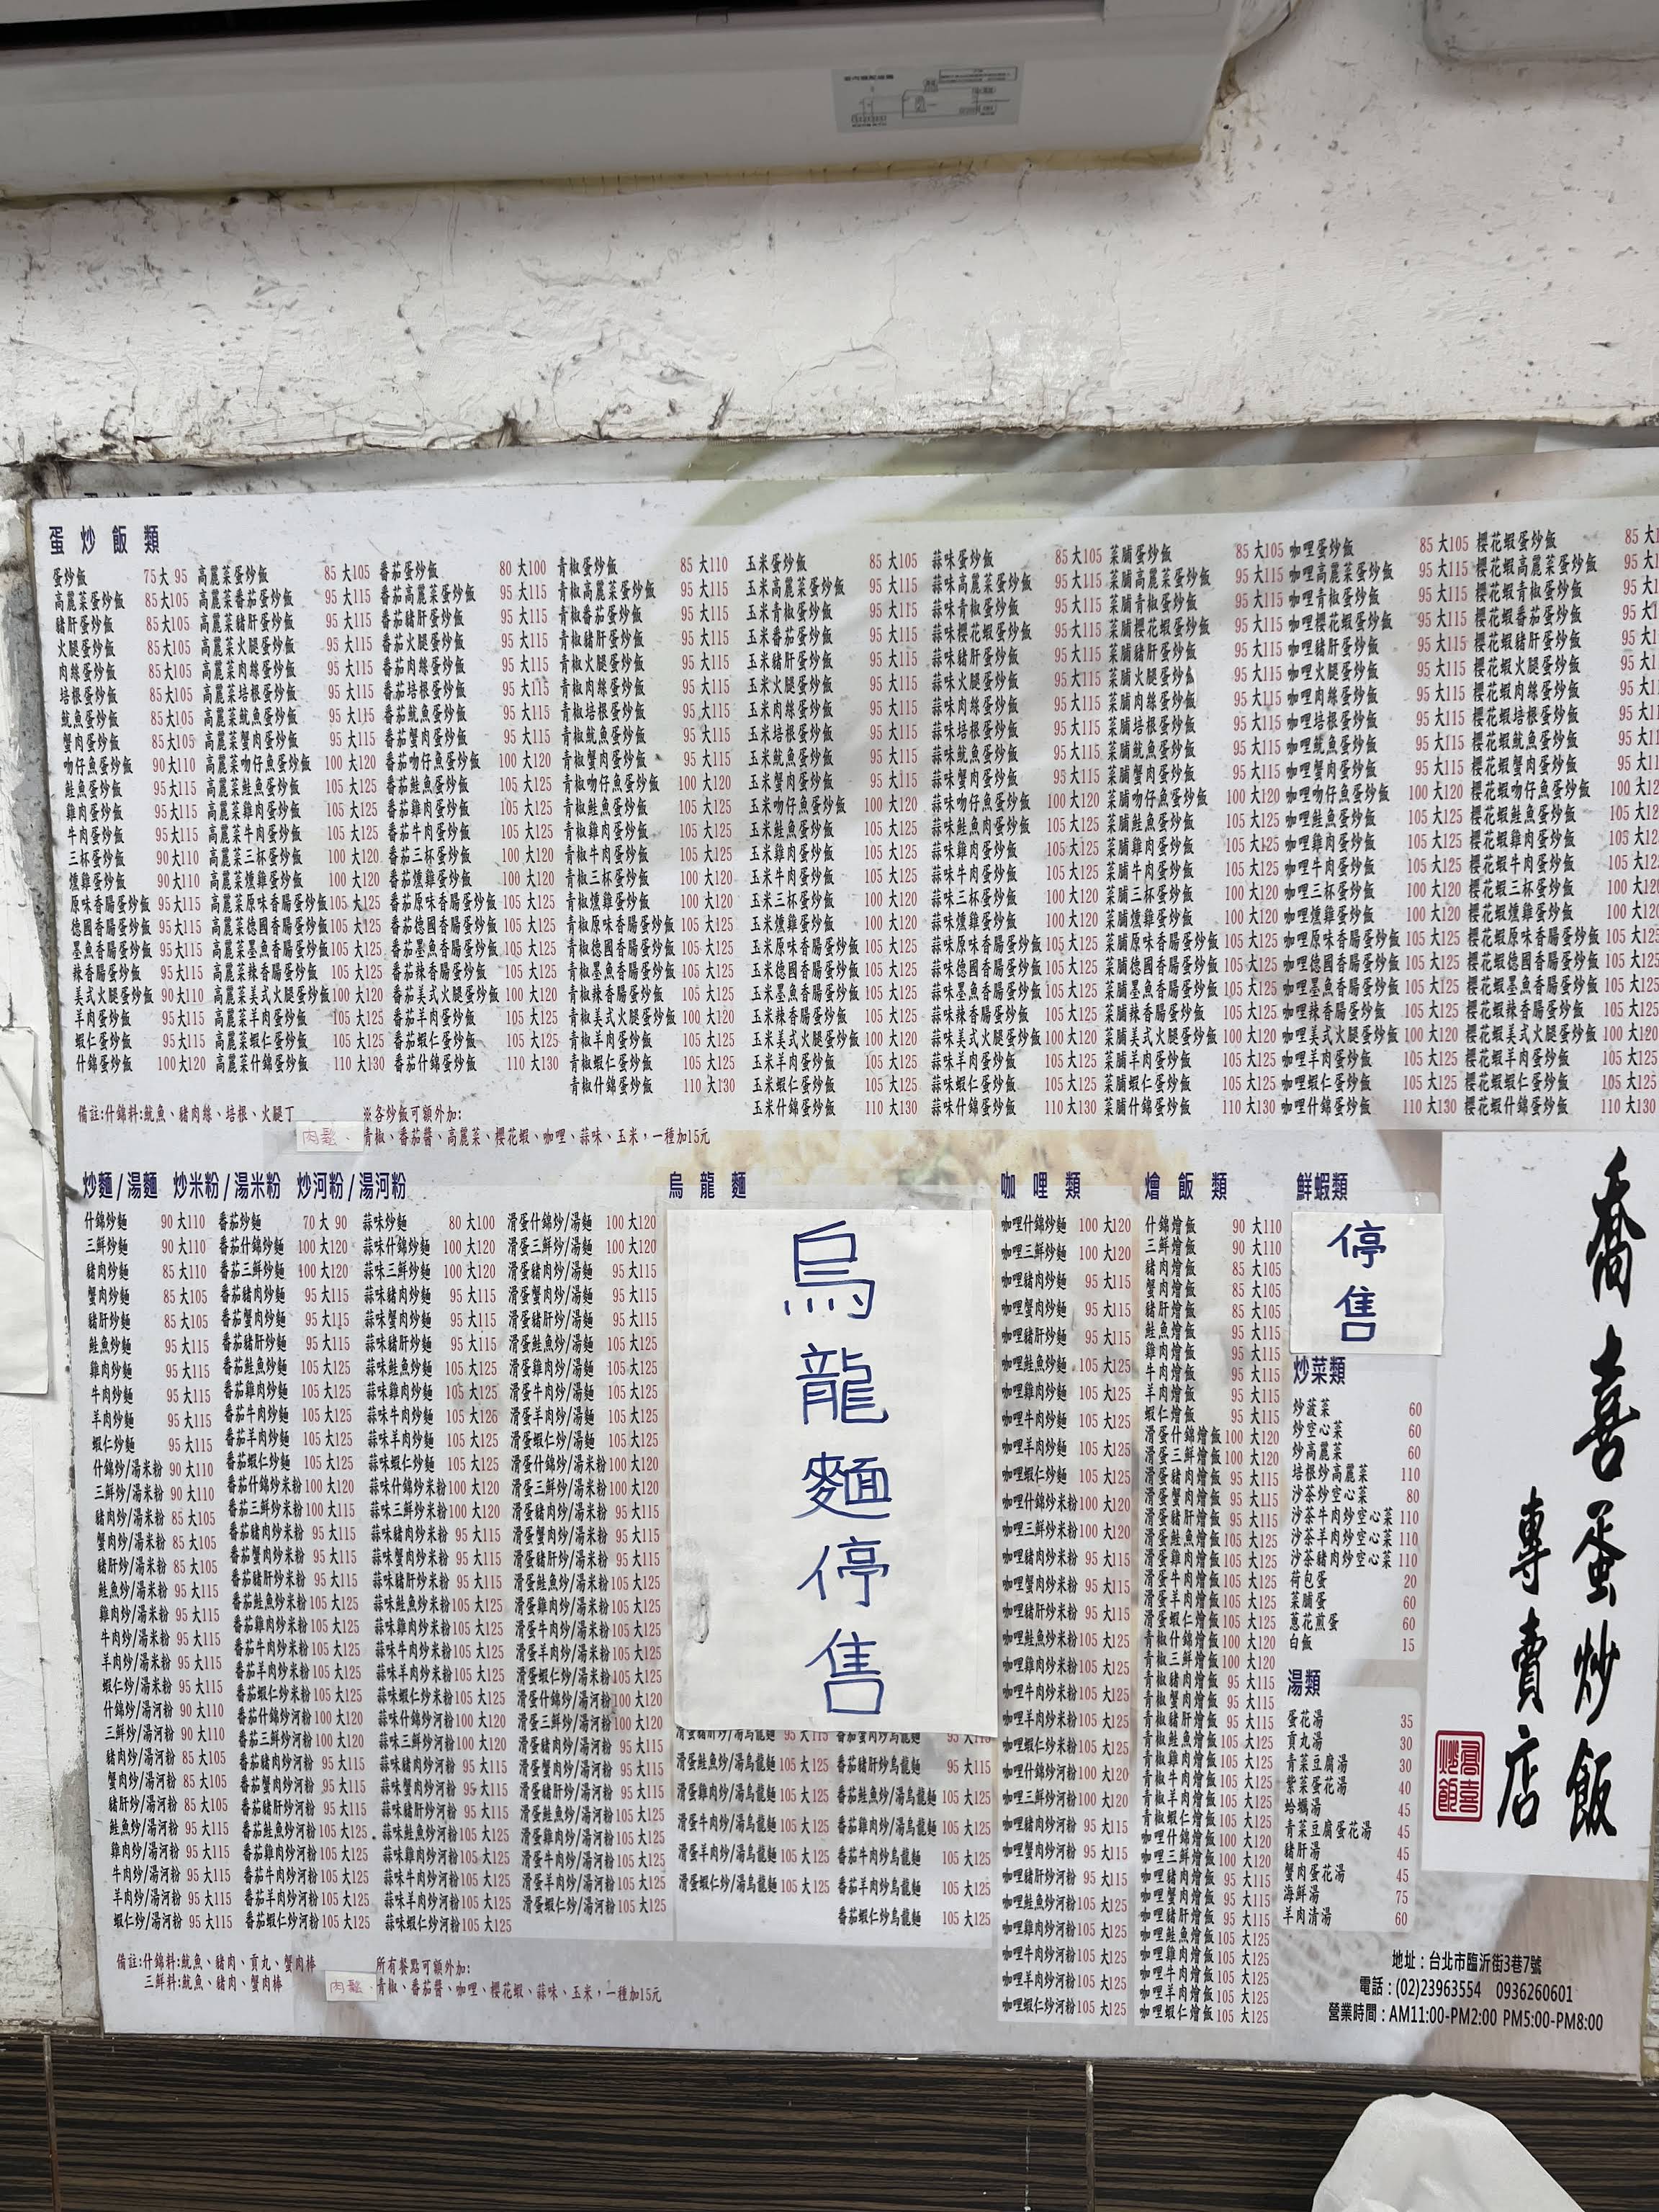 蛋炒飯類
蛋炒飯 75大 95
高麗菜蛋炒飯 85大105
豬肝蛋炒飯 85大105
火腿蛋炒飯 85大105
肉絲蛋炒飯 85大105
培根蛋炒飯 85大105
魷魚蛋炒飯 85大105
蟹肉蛋炒飯 85大105
吻仔魚蛋炒飯 90大110
鮭魚蛋炒飯 95大115
雞肉蛋炒飯 95大115
牛肉蛋炒飯 95大115
三杯蛋炒飯 90大110
燻雞蛋炒飯 90大110
原味香腸蛋炒飯 95大115
德國香腸蛋炒飯 95大115
墨魚香腸蛋炒飯 95大115
辣香腸蛋炒飯 95大115
美式火腿蛋炒飯 90大110
羊肉蛋炒飯 95大115
蝦仁蛋炒飯 95大115
什錦蛋炒飯 100大120
高麗菜蛋炒飯 85大105
高麗菜番茄蛋炒飯 95大115
高麗菜豬肝蛋炒飯 95大115
高麗菜火腿蛋炒飯 95大115
高麗菜肉絲蛋炒飯 95大115
高麗菜培根蛋炒飯 95大115
高麗菜魷魚蛋炒飯 95大115
高麗菜蟹肉蛋炒飯 95大115
高麗菜吻仔魚蛋炒飯 100大120
高麗菜鮭魚蛋炒飯 105大125
高麗菜雞肉蛋炒飯 105大125
高麗菜牛肉蛋炒飯 105大125
高麗菜三杯蛋炒飯 100大120
高麗菜燻雞蛋炒飯 100大120
高麗菜原味香腸蛋炒飯 105大125
高麗菜德國香腸蛋炒飯 105大125
高麗菜墨魚香腸蛋炒飯 105大125
高麗菜辣香腸蛋炒飯 105大125
高麗菜美式火腿蛋炒飯 100大120
高麗菜羊肉蛋炒飯 105大125
高麗菜蝦仁蛋炒飯 105大125
高麗菜什錦蛋炒飯 110大130
番茄蛋炒飯 80大100
番茄高麗菜蛋炒飯 95大115
番茄豬肝蛋炒飯 95大115
番茄火腿蛋炒飯 95大115
番茄肉絲蛋炒飯 95大115
番茄培根蛋炒飯 95大115
番茄魷魚蛋炒飯 95大115
番茄蟹肉蛋炒飯 95大115
番茄吻仔魚蛋炒飯 100大120
番茄鮭魚蛋炒飯 105大125
番茄雞肉蛋炒飯 105大125
番茄牛肉蛋炒飯 105大125
番茄三杯蛋炒飯 100大120
番茄燻雞蛋炒飯 100大120
番茄原味香腸蛋炒飯 105大125
番茄德國香腸蛋炒飯 105大125
番茄墨魚香腸蛋炒飯 105大125
番茄辣香腸蛋炒飯 105大125
番茄美式火腿蛋炒飯 100大120
番茄羊肉蛋炒飯 105大125
番茄蝦仁蛋炒飯 105大125
番茄什錦蛋炒飯 110大130
青椒蛋炒飯 85大110
青椒高麗菜蛋炒飯 95大115
青椒番茄蛋炒飯 95大115
青椒豬肝蛋炒飯 95大115
青椒火腿蛋炒飯 95大115
青椒肉絲蛋炒飯 95大115
青椒培根蛋炒飯 95大115
青椒魷魚蛋炒飯 95大115
青椒蟹肉蛋炒飯 95大115
青椒吻仔魚蛋炒飯 100大120
青椒鮭魚蛋炒飯 105大125
青椒雞肉蛋炒飯 105大125
青椒牛肉蛋炒飯 105大125
青椒三杯蛋炒飯 100大120
青椒燻雞蛋炒飯 100大120
青椒原味香腸蛋炒飯 105大125
青椒德國香腸蛋炒飯 105大125
青椒墨魚香腸蛋炒飯 105大125
青椒辣香腸蛋炒飯 105大125
青椒美式火腿蛋炒飯 100大120
青椒羊肉蛋炒飯 105大125
青椒蝦仁蛋炒飯 105大125
青椒什錦蛋炒飯 110大130
玉米蛋炒飯 85大105
玉米高麗菜蛋炒飯 95大115
玉米青椒蛋炒飯 95大115
玉米番茄蛋炒飯 95大115
玉米豬肝蛋炒飯 95大115
玉米火腿蛋炒飯 95大115
玉米肉絲蛋炒飯 95大115
玉米培根蛋炒飯 95大115
玉米魷魚蛋炒飯 95大115
玉米蟹肉蛋炒飯 95大115
玉米吻仔魚蛋炒飯 100大120
玉米鮭魚蛋炒飯 105大125
玉米雞肉蛋炒飯 105大125
玉米牛肉蛋炒飯 105大125
玉米三杯蛋炒飯 100大120
玉米燻雞蛋炒飯 100大120
玉米原味香腸蛋炒飯 105大125
玉米德國香腸蛋炒飯 105大125
玉米墨魚香腸蛋炒飯 105大125
玉米辣香腸蛋炒飯 105大125
玉米美式火腿蛋炒飯 100大120
玉米羊肉蛋炒飯 105大125
玉米蝦仁蛋炒飯 105大125
玉米什錦蛋炒飯 110大130
蒜味蛋炒飯 85大105
蒜味高麗菜蛋炒飯 95大115
蒜味青椒蛋炒飯 95大115
蒜味櫻花蝦蛋炒飯 95大115
蒜味豬肝蛋炒飯 95大115
蒜味火腿蛋炒飯 95大115
蒜味肉絲蛋炒飯 95大115
蒜味培根蛋炒飯 95大115
蒜味魷魚蛋炒飯 95大115
蒜味蟹肉蛋炒飯 95大115
蒜味吻仔魚蛋炒飯 100大120
蒜味鮭魚肉蛋炒飯 105大125
蒜味雞肉蛋炒飯 105大125
蒜味牛肉蛋炒飯 105大125
蒜味三杯蛋炒飯 100大120
蒜味燻雞蛋炒飯 100大120
蒜味原味香腸蛋炒飯 105大125
蒜味德國香腸蛋炒飯 105大125
蒜味墨魚香腸蛋炒飯 105大125
蒜味辣香腸蛋炒飯 105大125
蒜味美式火腿蛋炒飯 100大120
蒜味羊肉蛋炒飯 105大125
蒜味蝦仁蛋炒飯 105大125
蒜味什錦蛋炒飯 110大130
菜脯蛋炒飯 85大105
菜脯高麗菜蛋炒飯 95大115
菜脯青椒蛋炒飯 95大115
菜脯櫻花蝦蛋炒飯 95大115
菜脯豬肝蛋炒飯 95大115
菜脯火腿蛋炒飯 95大115
菜脯肉絲蛋炒飯 95大115
菜脯培根蛋炒飯 95大115
菜脯魷魚蛋炒飯 95大115
菜脯蟹肉蛋炒飯 95大115
菜脯吻仔魚蛋炒飯 100大120
菜脯鮭魚蛋炒飯 105大125
菜脯雞肉蛋炒飯 105大125
菜脯牛肉蛋炒飯 105大125
菜脯三杯蛋炒飯 100大120
菜脯燻雞蛋炒飯 100大120
菜脯原味香腸蛋炒飯 105大125
菜脯德國香腸蛋炒飯 105大125
菜脯墨魚香腸蛋炒飯 105大125
菜脯辣香腸蛋炒飯 105大125
菜脯美式火腿蛋炒飯 100大120
菜脯羊肉蛋炒飯 105大125
菜脯蝦仁蛋炒飯 105大125
菜脯什錦蛋炒飯 110大130
咖哩蛋炒飯 85大105
咖哩高麗菜蛋炒飯 95大115
咖哩青椒蛋炒飯 95大115
咖哩櫻花蝦蛋炒飯 95大115
咖哩豬肝蛋炒飯 95大115
咖哩火腿蛋炒飯 95大115
咖哩肉絲蛋炒飯 95大115
咖哩培根蛋炒飯 95大115
咖哩魷魚蛋炒飯 95大115
咖哩蟹肉蛋炒飯 95大115
咖哩吻仔魚蛋炒飯 100大120
咖哩鮭魚蛋炒飯 105大125
咖哩雞肉蛋炒飯 105大125
咖哩牛肉蛋炒飯 105大125
咖哩三杯蛋炒飯 100大120
咖哩燻雞蛋炒飯 100大120
咖哩原味香腸蛋炒飯 105大125
咖哩德國香腸蛋炒飯 105大125
咖哩墨魚香腸蛋炒飯 105大125
咖哩辣香腸蛋炒飯 105大125
咖哩美式火腿蛋炒飯 100大120
咖哩羊肉蛋炒飯 105大125
咖哩蝦仁蛋炒飯 105大125
咖哩什錦蛋炒飯 110大130
櫻花蝦蛋炒飯 85
櫻花蝦高麗菜蛋炒飯 95
櫻花蝦青椒蛋炒飯 95
櫻花蝦番茄蛋炒飯 95
櫻花蝦豬肝蛋炒飯 95
櫻花蝦火腿蛋炒飯 95
櫻花蝦肉絲蛋炒飯 95
櫻花蝦培根蛋炒飯 95
櫻花蝦魷魚蛋炒飯 95
櫻花蝦蟹肉蛋炒飯 95
櫻花蝦吻仔魚蛋炒飯 100
櫻花蝦鮭魚蛋炒飯 105
櫻花蝦雞肉蛋炒飯 105
櫻花蝦牛肉蛋炒飯 105
櫻花蝦三杯蛋炒飯 100大120
櫻花蝦燻雞蛋炒飯 100大120
櫻花蝦原味香腸蛋炒飯 105大125
櫻花蝦德國香腸蛋炒飯 105大125
櫻花蝦墨魚香腸蛋炒飯 105大125
櫻花蝦辣香腸蛋炒飯 105大125
櫻花蝦美式火腿蛋炒飯 100大120
櫻花蝦羊肉蛋炒飯 105大125
櫻花蝦蝦仁蛋炒飯 105大125
櫻花蝦什錦蛋炒飯 110大130
備註:什錦料:魷魚、豬肉絲、培根、火腿丁
※各炒飯可額外加:
肉鬆、青椒、番茄醬、高麗菜、櫻花蝦、咖哩、蒜味、玉米,一種加15元
炒麵/湯麵 炒米粉/湯米粉 炒河粉/湯河粉
什錦炒麵 90大110
三鮮炒麵 90大110
豬肉炒麵 85大110
蟹肉炒麵 85大105
豬肝炒麵 85大105
鮭魚炒麵 95大115
雞肉炒麵 95大115
牛肉炒麵 95大115
羊肉炒麵 95大115
蝦仁炒麵 95大115
什錦炒/湯米粉 90大110
三鮮炒/湯米粉 90大110
豬肉炒/湯米粉 85大105
蟹肉炒/湯米粉 85大105
豬肝炒/湯米粉 85大105
鮭魚炒/湯米粉 95大115
雞肉炒/湯米粉 95大115
牛肉炒/湯米粉 95大115
羊肉炒/湯米粉 95大115
蝦仁炒/湯米粉 95大115
什錦炒/湯河粉 90大110
三鮮炒/湯河粉 90大110
豬肉炒/湯河粉 85大105
蟹肉炒/湯河粉 85大105
豬肝炒/湯河粉 85大105
鮭魚炒/湯河粉 95大115
雞肉炒/湯河粉 95大115
牛肉炒/湯河粉 95大115
羊肉炒/湯河粉 95大115
蝦仁炒/湯河粉 95大115
番茄炒麵 70大 90
番茄什錦炒麵 100大120
番茄三鮮炒麵 100大120
番茄豬肉炒麵 95大115
番茄蟹肉炒麵 95大115
番茄豬肝炒麵 95大115
番茄鮭魚炒麵 105大125
番茄雞肉炒麵 105大125
番茄牛肉炒麵 105大125
番茄羊肉炒麵 105大125
番茄蝦仁炒麵 105大125
番茄什錦炒米粉 100大120
番茄三鮮炒米粉 100大115
番茄豬肉炒米粉 95大115
番茄蟹肉炒米粉 95大115
番茄豬肝炒米粉 95大115
番茄鮭魚炒米粉 105大125
番茄雞肉炒米粉 105大125
番茄牛肉炒米粉 105大125
番茄羊肉炒米粉 105大125
番茄蝦仁炒米粉 105大125
番茄什錦炒河粉 100大120
番茄三鮮炒河粉 100大120
番茄豬肉炒河粉 95大115
番茄蟹肉炒河粉 95大115
番茄豬肝炒河粉 95大115
番茄鮭魚炒河粉 105大125
番茄雞肉炒河粉 105大125
番茄牛肉炒河粉 105大125
番茄羊肉炒河粉 105大125
番茄蝦仁炒河粉 105大125
蒜味炒麵 80大100
蒜味什錦炒麵 100大120
蒜味三鮮炒麵 100大120
蒜味豬肉炒麵 95大115
蒜味蟹肉炒麵 95大115
蒜味豬肝炒麵 95大115
蒜味鮭魚炒麵 105大125
蒜味雞肉炒麵 105大125
蒜味牛肉炒麵 105大125
蒜味羊肉炒麵 105大125
蒜味蝦仁炒麵 105大125
蒜味什錦炒米粉 100大120
蒜味三鮮炒米粉 100大120
蒜味豬肉炒米粉 95大115
蒜味蟹肉炒米粉 95大115
蒜味豬肝炒米粉 95大115
蒜味鮭魚炒米粉 105大125
蒜味雞肉炒米粉 105大125
蒜味牛肉炒米粉 105大125
蒜味羊肉炒米粉 105大125
蒜味蝦仁炒米粉 105大125
蒜味什錦炒河粉 100大120
蒜味三鮮炒河粉 100大120
蒜味豬肉炒河粉 95大115
蒜味蟹肉炒河粉 95大115
蒜味豬肝炒河粉 95大115
蒜味鮭魚炒河粉 105大125
蒜味雞肉炒河粉 105大125
蒜味牛肉炒河粉 105大125
蒜味羊肉炒河粉 105大125
蒜味蝦仁炒河粉 105大125
滑蛋什錦炒/湯麵 100大120
滑蛋三鮮炒/湯麵 100大120
滑蛋豬肉炒/湯麵 95大115
滑蛋蟹肉炒/湯麵 95大115
滑蛋豬肝炒/湯麵 95大115
滑蛋鮭魚炒/湯麵 105大125
滑蛋雞肉炒/湯麵 105大125
滑蛋牛肉炒/湯麵 105大125
滑蛋羊肉炒/湯麵 105大125
滑蛋蝦仁炒/湯麵 105大125
滑蛋什錦炒/湯米粉 100大120
滑蛋三鮮炒/湯米粉 100大120
滑蛋豬肉炒/湯米粉 95大115
滑蛋蟹肉炒/湯米粉 95大115
滑蛋豬肝炒/湯米粉 95大115
滑蛋鮭魚炒/湯米粉 105大125
滑蛋雞肉炒/湯米粉 105大125
滑蛋牛肉炒/湯米粉 105大125
滑蛋羊肉炒/湯米粉 105大125
滑蛋蝦仁炒/湯米粉 105大125
滑蛋什錦炒/湯河粉 100大120
滑蛋三鮮炒/湯河粉 100大120
滑蛋豬肉炒/湯河粉 95大115
滑蛋蟹肉炒/湯河粉 95大115
滑蛋豬肝炒/湯河粉 95大115
滑蛋鮭魚炒/湯河粉 105大125
滑蛋雞肉炒/湯河粉 105大125
滑蛋牛肉炒/湯河粉 105大125
滑蛋羊肉炒/湯河粉 105大125
滑蛋蝦仁炒/湯河粉 105大125
備註:什錦料:魷魚、豬肉、貢丸、蟹肉棒
三鮮料:魷魚、豬肉、蟹肉棒
所有餐點可額外加:
肉鬆、青椒、番茄醬、咖哩、櫻花蝦、蒜味、玉米,一種加15元
烏龍麵
烏龍麵停售
滑蛋豬肝炒/湯烏龍麵 95大115
滑蛋鮭魚炒/湯烏龍麵 105大125
滑蛋雞肉炒/湯烏龍麵 105大125
滑蛋牛肉炒/湯烏龍麵 105大125
滑蛋羊肉炒/湯烏龍麵 105大125
滑蛋蝦仁炒/湯烏龍麵 105大125
番茄蟹肉炒烏龍麵 95大115
番茄豬肝炒烏龍麵 95大115
番茄鮭魚炒/湯烏龍麵 105大125
番茄雞肉炒/湯烏龍麵 105大125
番茄牛肉炒烏龍麵 105大125
番茄羊肉炒烏龍麵 105大125
番茄蝦仁炒烏龍麵 105大125
咖哩類
咖哩什錦炒麵 100大120
咖哩三鮮炒麵 100大120
咖哩豬肉炒麵 95大115
咖哩蟹肉炒麵 95大115
咖哩豬肝炒麵 95大115
咖哩鮭魚炒麵 105大125
咖哩雞肉炒麵 105大125
咖哩牛肉炒麵 105大125
咖哩羊肉炒麵 105大125
咖哩蝦仁炒麵 105大125
咖哩什錦炒米粉 100大120
咖哩三鮮炒米粉 100大120
咖哩豬肉炒米粉 95大115
咖哩蟹肉炒米粉 95大115
咖哩豬肝炒米粉 95大115
咖哩鮭魚炒米粉 105大125
咖哩雞肉炒米粉 105大125
咖哩牛肉炒米粉 105大125
咖哩羊肉炒米粉 105大125
咖哩蝦仁炒米粉 105大125
咖哩什錦炒河粉 100大120
咖哩三鮮炒河粉 100大120
咖哩豬肉炒河粉 95大115
咖哩蟹肉炒河粉 95大115
咖哩豬肝炒河粉 95大115
咖哩鮭魚炒河粉 105大125
咖哩雞肉炒河粉 105大125
咖哩牛肉炒河粉 105大125
咖哩羊肉炒河粉 105大125
咖哩蝦仁炒河粉 105大125
燴飯類
什錦燴飯 90大110
三鮮燴飯 90大110
豬肉燴飯 85大105
蟹肉燴飯 85大105
豬肝燴飯 85大105
鮭魚燴飯 95大115
雞肉燴飯 95大115
牛肉燴飯 95大115
羊肉燴飯 95大115
蝦仁燴飯 95大115
滑蛋什錦燴飯 100大120
滑蛋三鮮燴飯 100大120
滑蛋豬肉燴飯 95大115
滑蛋蟹肉燴飯 95大115
滑蛋豬肝燴飯 95大115
滑蛋鮭魚燴飯 105大125
滑蛋雞肉燴飯 105大125
滑蛋牛肉燴飯 105大125
滑蛋羊肉燴飯 105大125
滑蛋蝦仁燴飯 105大125
青椒什錦燴飯 100大120
青椒三鮮燴飯 100大120
青椒豬肉燴飯 95大115
青椒蟹肉燴飯 95大115
青椒豬肝燴飯 95大115
青椒鮭魚燴飯 105大125
青椒雞肉燴飯 105大125
青椒牛肉燴飯 105大125
青椒羊肉燴飯 105大125
青椒蝦仁燴飯 105大125
咖哩什錦燴飯 100大120
咖哩三鮮燴飯 100大120
咖哩豬肉燴飯 95大115
咖哩蟹肉燴飯 95大115
咖哩豬肝燴飯 95大115
咖哩鮭魚燴飯 105大125
咖哩雞肉燴飯 105大125
咖哩牛肉燴飯 105大125
咖哩羊肉燴飯 105大125
咖哩蝦仁燴飯 105大125
鮮蝦類
停售
炒菜類
炒菠菜 60
炒空心菜 60
炒高麗菜 60
培根炒高麗菜 110
沙茶炒空心菜 80
沙茶牛肉炒空心菜 110
沙茶羊肉炒空心菜 110
沙茶豬肉炒空心菜 110
荷包蛋 20
菜脯蛋 60
蔥花煎蛋 60
白飯 15
湯類
蛋花湯 35
貢丸湯 30
青菜豆腐湯 30
紫菜蛋花湯 40
蛤蠣湯 45
青菜豆腐蛋花湯 45
豬肝湯 45
蟹肉蛋花湯 45
海鮮湯 75
羊肉清湯 60
喬喜蛋炒飯
專賣店
喬喜炒飯
地址:台北市臨沂街3巷7號
電話:(02)23963554 0936260601
營業時間:AM11:00-PM2:00 PM5:00-PM8:00